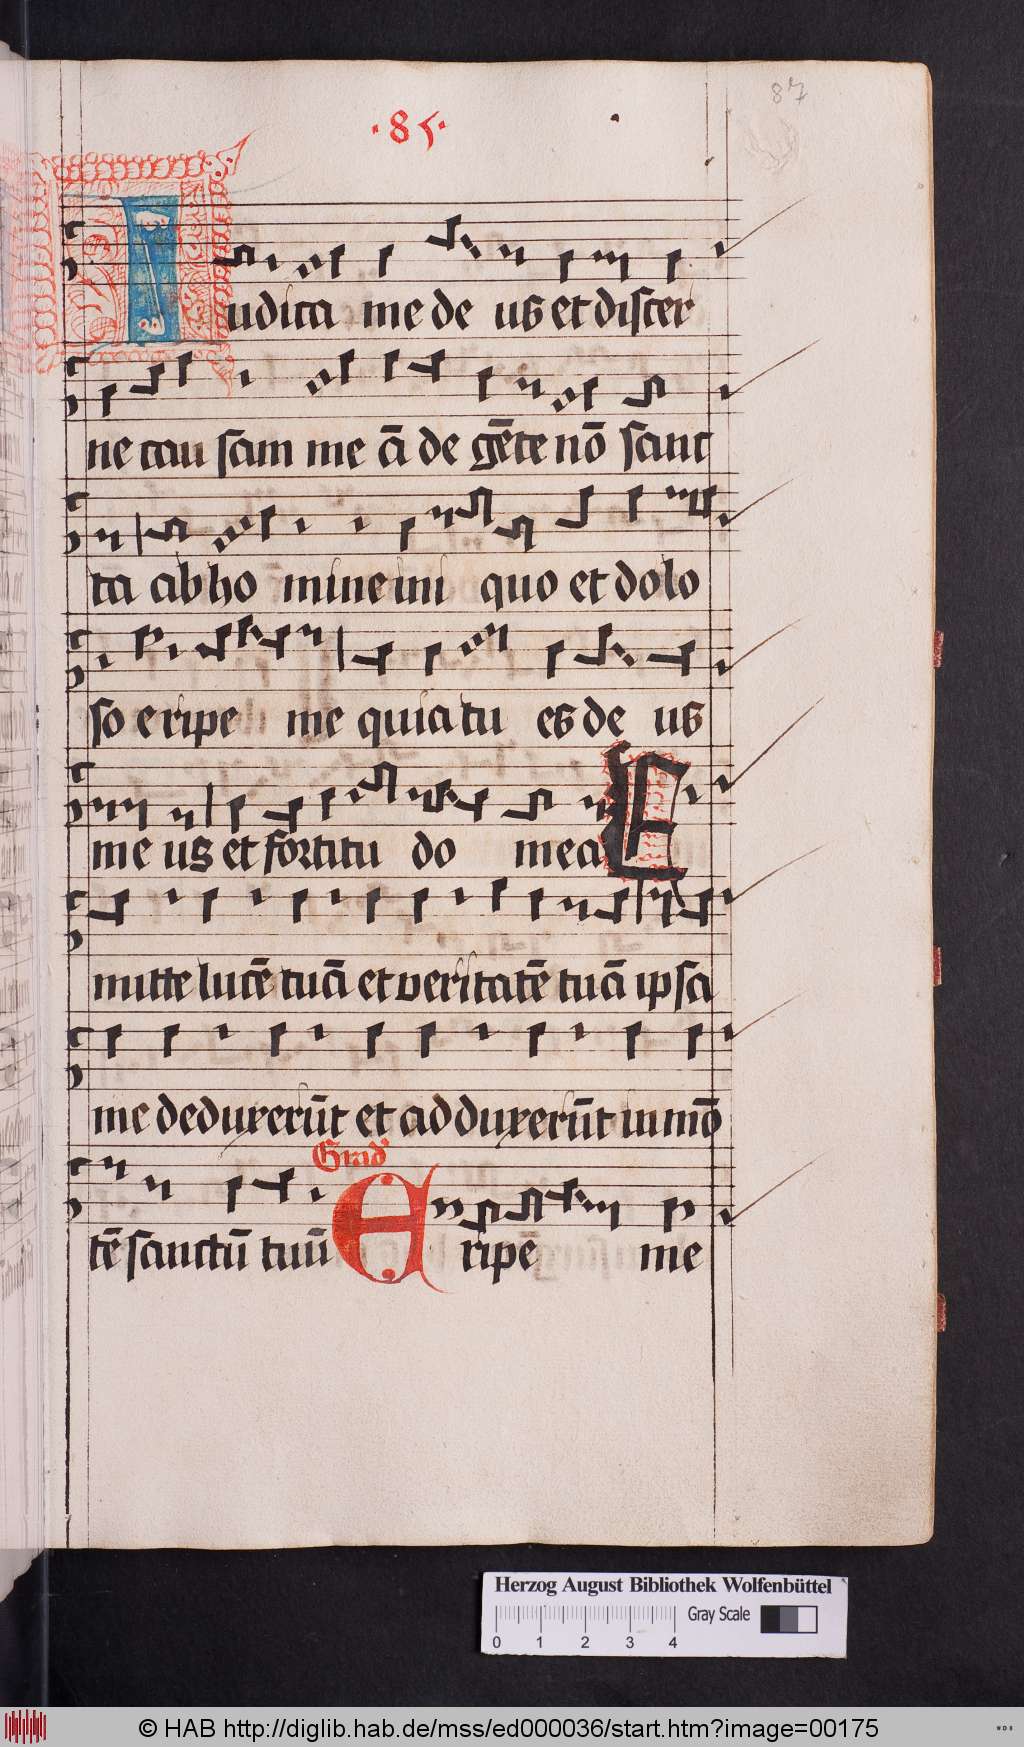 87
·85·
Iudica me de us et discer
ne cau sam me ā de gēte nō sanc
ta ab ho mine ini quo et dolo
so eripe me quia tu es de us
me us et fortitu do mea E
mitte lucē tuā et veritatē tuā ipsa
me deduxerūt et adduxerūt in mō
Grad
tē sanctū tuū Eripe me
Herzog August Bibliothek Wolfenbüttel
Gray Scale
0 1 2 3 4
© HAB http://diglib.hab.de/mss/ed000036/start.htm?image=00175